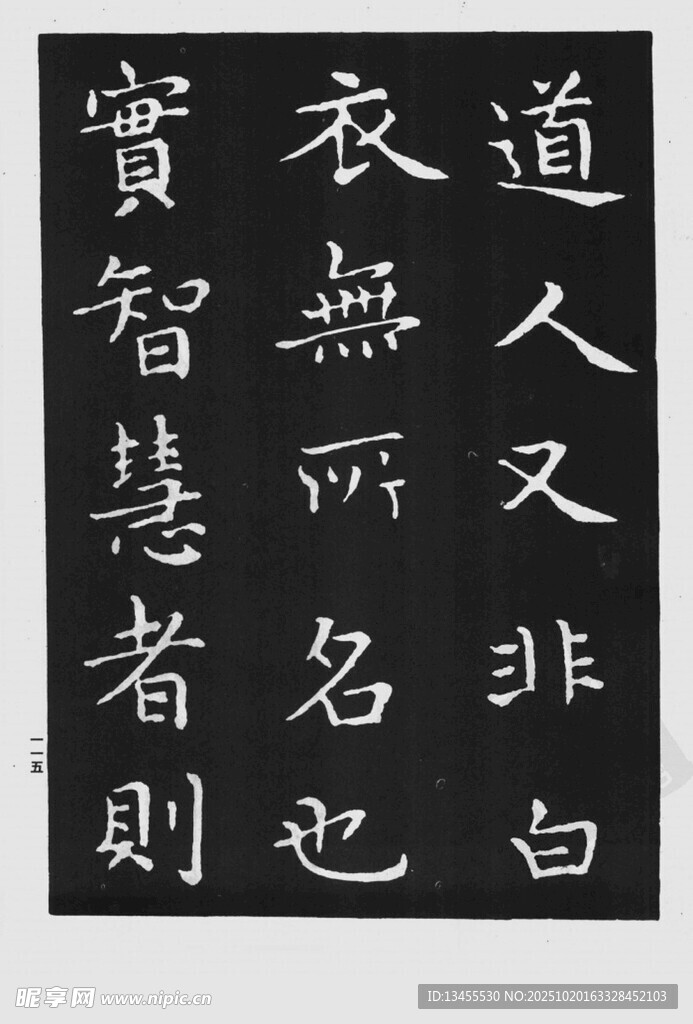 道人又非白
衣無所名也
實智慧者則
一一五
昵享网 www.nipic.cn
ID:13455530 NO:20251020163328452103